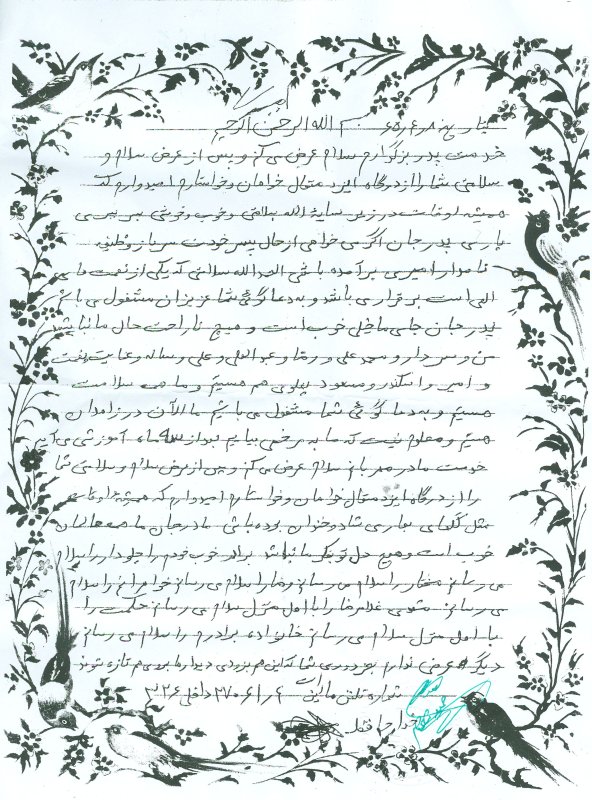 بسم الله الرحمن الرحیم
خدمت پدر بزرگوارم سلام عرض می کنم و پس از عرض سلام و
سلامتی شما را از درگاه ایزد متعال خواهان و خواستارم امیدوارم که
همیشه اوقات در زیر سایه الله بسلامتی و خوب و خوشی بسر ببری
باری پدر جان اگر می خواهی از حال پسر خودت سرباز وظیفه
نامدار امیری بر آمده باشی الحمد الله سلامتی که یکی از نعمت های
الهی است برقرار می باشد و به دعا گوئی شما عزیزان مشغول می باشم
پدر جان جای ما خیلی خوب است و هیچ ناراحت حال ما نباشید
من و سردار و محمد علی و رضا و عبد العلی و علی و
و امیر و اسکندر و مسعود پهلوی هم هستیم و ما همه سلامت
هستیم و به دعا گوئی شما مشغول می باشیم ما الآن در زاهدان
هستیم و معلوم نیست که ما به مرخصی بیاییم بعد از سه ماه آموزشی می آییم
خدمت مادر مهربانم سلام عرض می کنم و پس از عرض سلام و سلامتی شما
را از درگاه ایزد متعال خواهان و خواستارم امیدوارم که همیشه اوقات
مثل گلهای بهاری شاد و خندان بوده باشی مادر جان ما همه حالمان
خوب است و هیچ دل تو نگران ما نباشد برادر خوب خودم را سلام
می رسانم مختار را سلام می رسانم رضا را سلام می رسانم خواهرانم را سلام
می رسانم غلامرضا را با اهل منزل سلام می رسانم حکمت را
با اهل منزل سلام می رسانم خانواده برادرم را سلام می رسانم
دیگر عرضی ندارم بجز دوری شما که این هم بزودی دیدارها بروی هم تازه شوند
شماره تلفن ما این است ۲۷۰۶۱۹۶ داخلی ۳۲۶